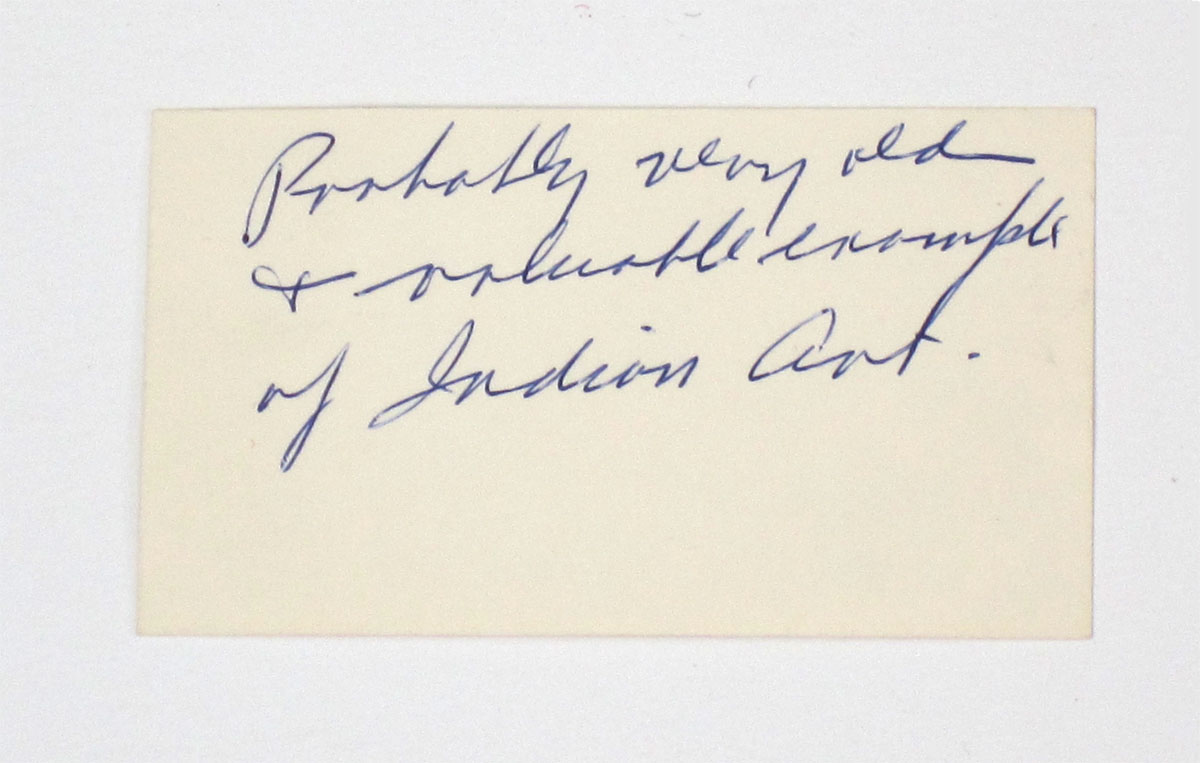 Probably very old
& valuable example
of Indian Art.